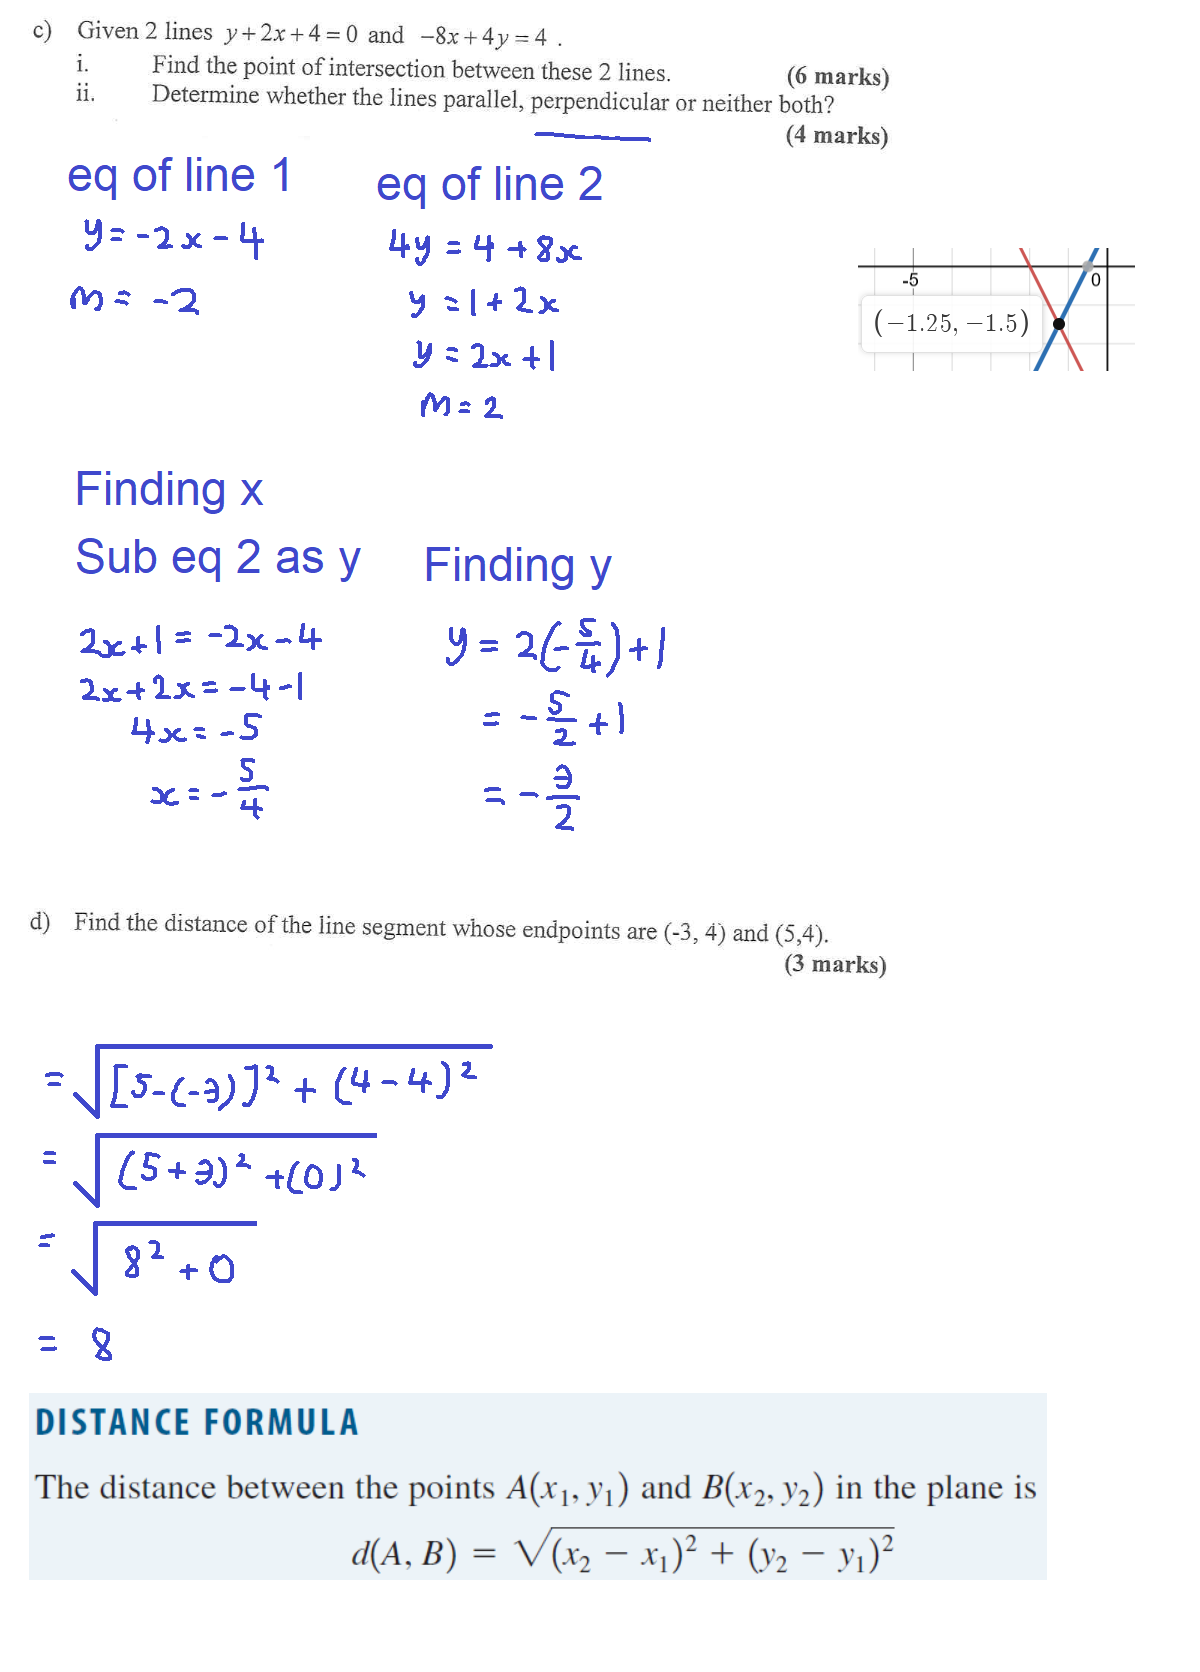 c) Given 2 lines y+2x+4=0 and -8x+4y=4 .
i. Find the point of intersection between these 2 lines. (6 marks)
ii. Determine whether the lines parallel, perpendicular or neither both?
(4 marks)
eq of line 1
y = -2x - 4
m = -2
eq of line 2
4y = 4 + 8x
y = 1 + 2x
y = 2x + 1
m = 2
-5 0
(−1.25, −1.5)
Finding x
Sub eq 2 as y
2x+1 = -2x-4
2x+2x = -4-1
4x = -5
x = -5/4
Finding y
y = 2(-5/4)+1
= -5/2 +1
= -3/2
d) Find the distance of the line segment whose endpoints are (-3, 4) and (5,4).
(3 marks)
= √[5-(-3)]² + (4-4)²
= √(5+3)² +(0)²
= √8² + 0
= 8
DISTANCE FORMULA
The distance between the points A(x₁, y₁) and B(x₂, y₂) in the plane is
d(A, B) = √(x₂ − x₁)² + (y₂ − y₁)²